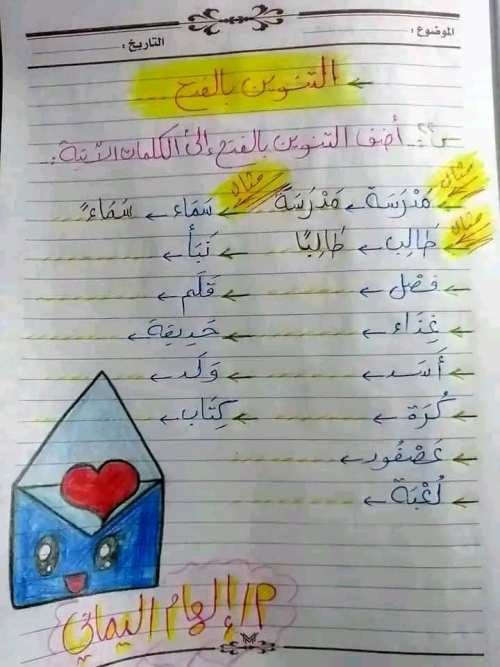 الموضوع:
التاريخ:
التنوين بالفتح
س٢: أضف التنوين بالفتح إلى الكلمات الآتية:
مثال مثال
مَدْرَسَة ← مَدْرَسَةً سَمَاء ← سَمَاءً
مثال
طَالِب ← طَالِبًا نَبَأ ←
فصْل ← قَلَم ←
غِذَاء ← حَدِيقَة ←
أَسَد ← وَلَد ←
كُرَة ← كِتَاب ←
عَصْفُور ←
لُعْبَة ←
م/إلهام اليماني